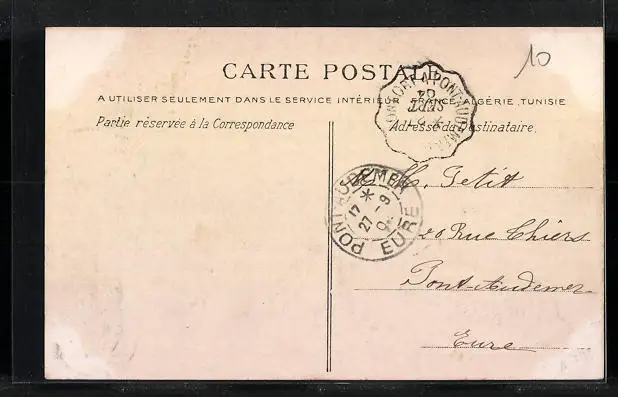 10
CARTE POSTALE
A UTILISER SEULEMENT DANS LE SERVICE INTÉRIEUR FRANCE, ALGÉRIE, TUNISIE
Partie réservée à la Correspondance
Adresse du Destinataire
A PONT-AUDEMER
SEPT
04
PONT-AUDEMER
17 *
27 -9
EURE
Petit
20 Rue Thiers
Pont-Audemer
Eure